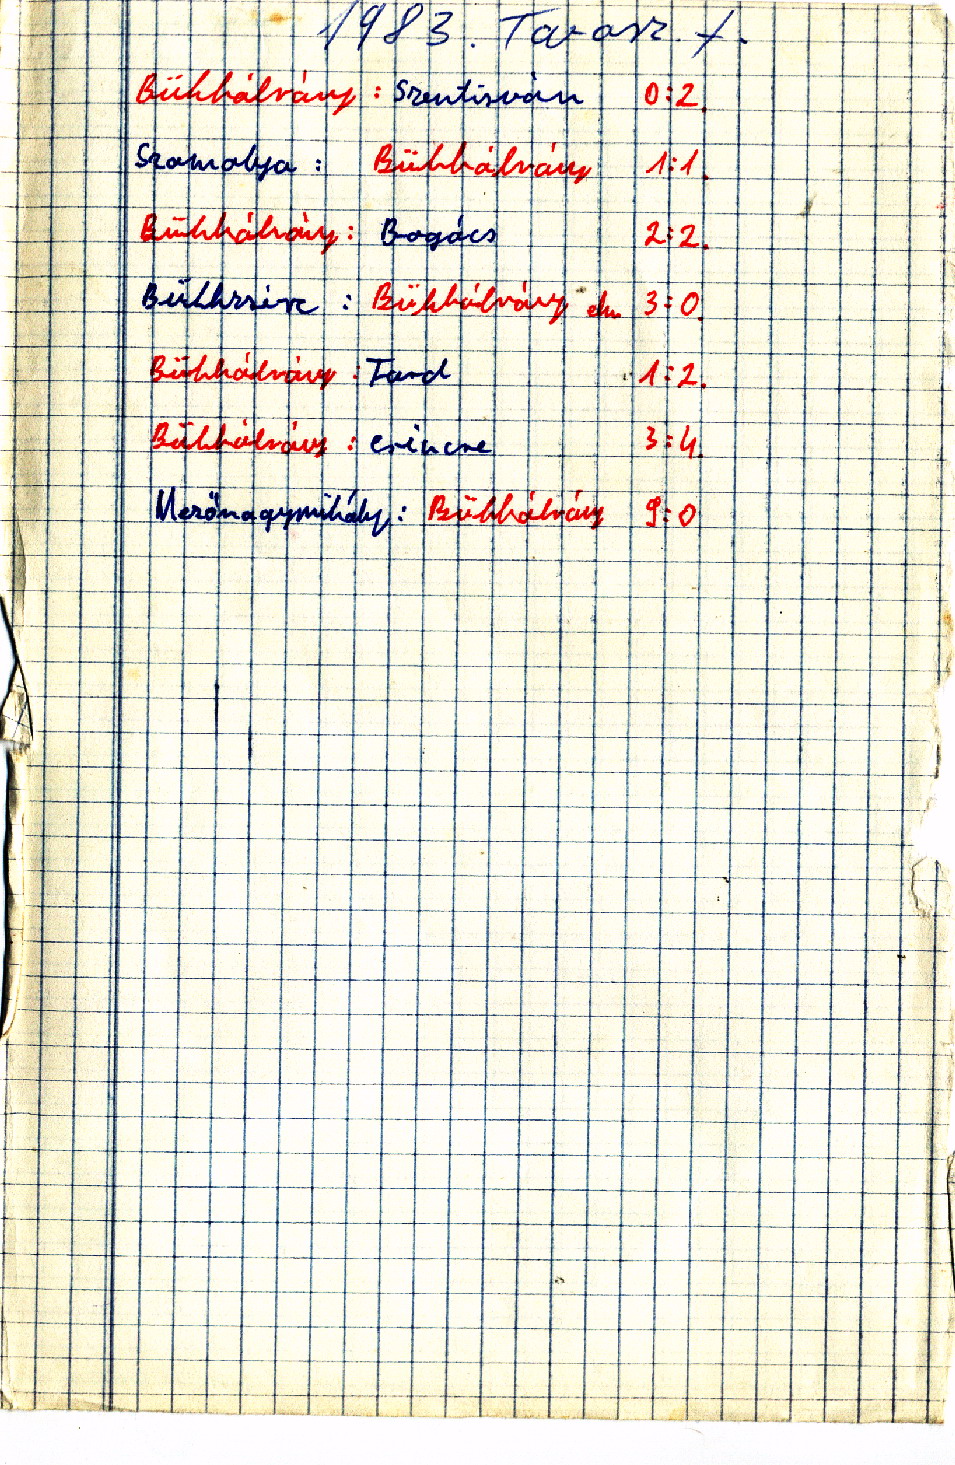 1983. Tavasz f.
Bükkábrány : Szentistván 0:2.
Szomolya : Bükkábrány 1:1.
Bükkábrány : Bogács 2:2.
Bükkzsérc : Bükkábrány 3:0.
Bükkábrány : Tard 1:2.
Bükkábrány : Csincse 3:4.
Mezőnagymihály : Bükkábrány 9:0